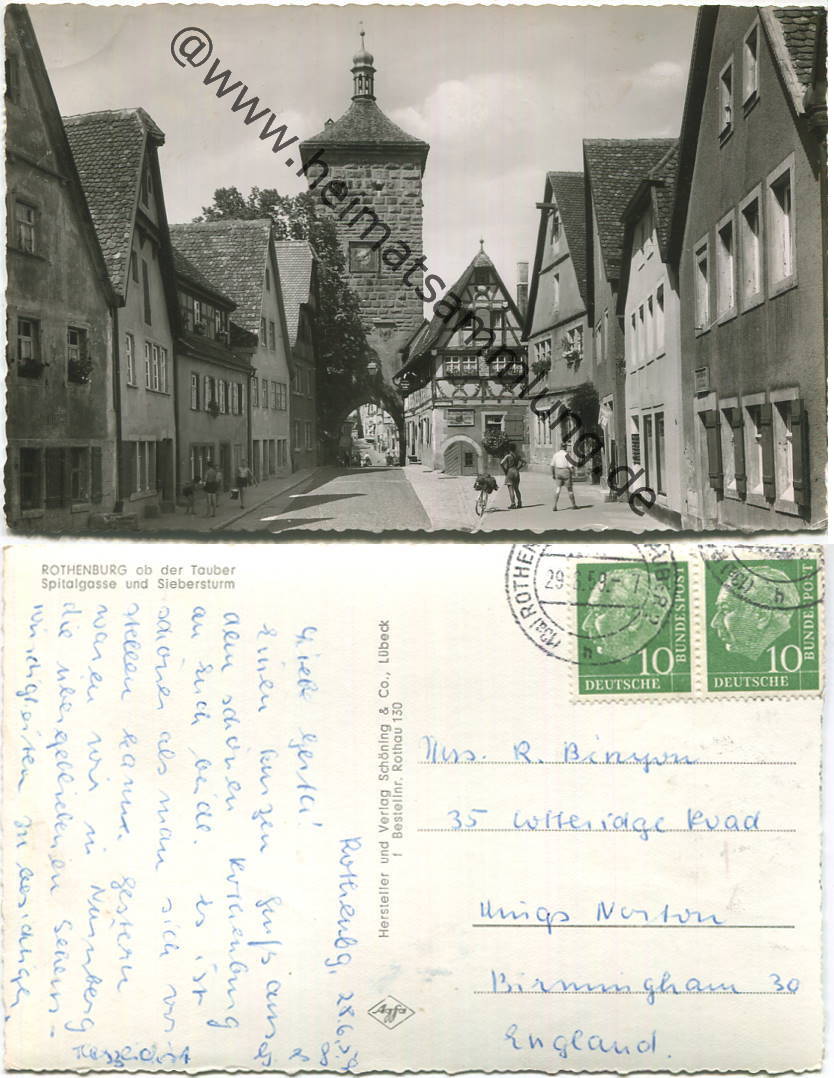 @www.heimatsammlung.de
ROTHENBURG ob der Tauber
Spitalgasse und Siebersturm
Rothenbg, 28.6.59
Einen kurzen Gruß aus
dem schönen Rothenburg
an Euch beide. Es ist
schöner als man sich vor
stellen kann. Gestern
waren wir in Nürnberg
die übergebliebenen Sehens-
würdigkeiten zu besichtigen.
Hersteller und Verlag Schöning & Co., Lübeck
Bestellnr. Rothau 130
Agfa
ROTHEN
29.6.59
10
DEUTSCHE
BUNDESPOST
10
DEUTSCHE
BUNDESPOST
Mrs. R. Binyon
35 Cotteridge Road
Kings Norton
Birmingham 30
England.